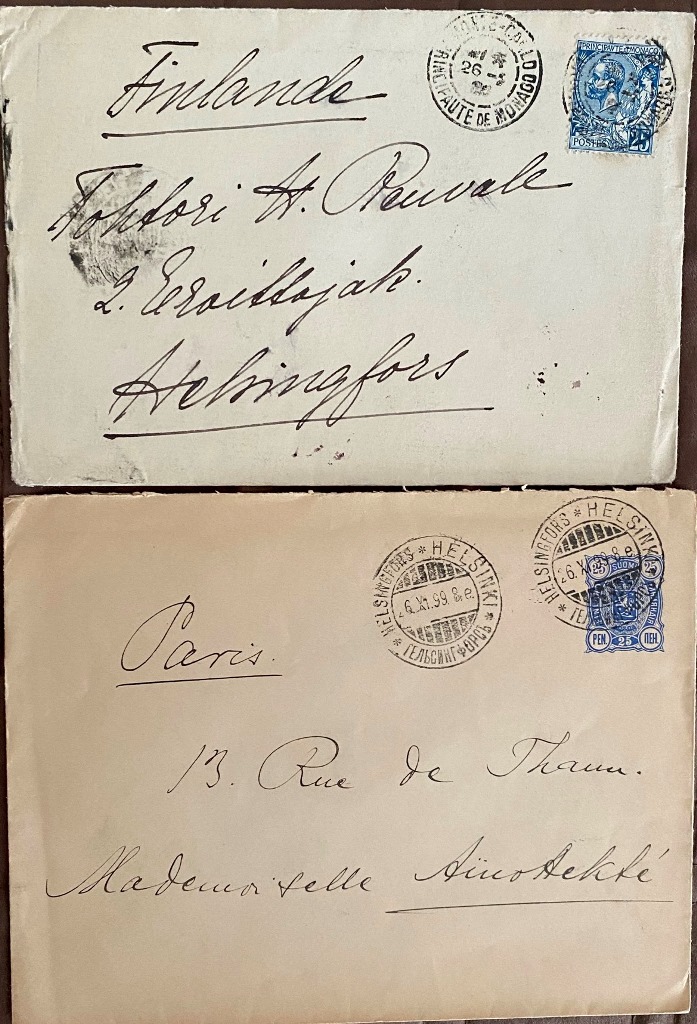 MONTE-CARLO
26
PRINCIPAUTÉ DE MONACO
PRINCIPAUTÉ DE MONACO
POSTES 25
Finlande
Tohtori H. Renvale
2. Eroittajak.
Helsingfors
HELSINGFORS * HELSINKI
26.XI.99.8.e.
* ГЕЛЬСИНГФОРСЪ *
HELSINGFORS * HELSINKI
26.XI.99.8.e.
25 SUOMI 25
PEN. 25 ПЕН.
Paris.
13. Rue de Thann.
Mademoiselle Aïno Aekté